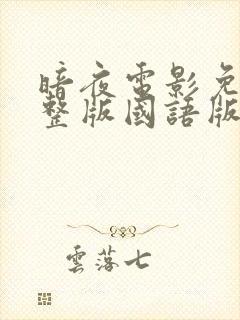 暗夜電影免
整版國語版
雲落七